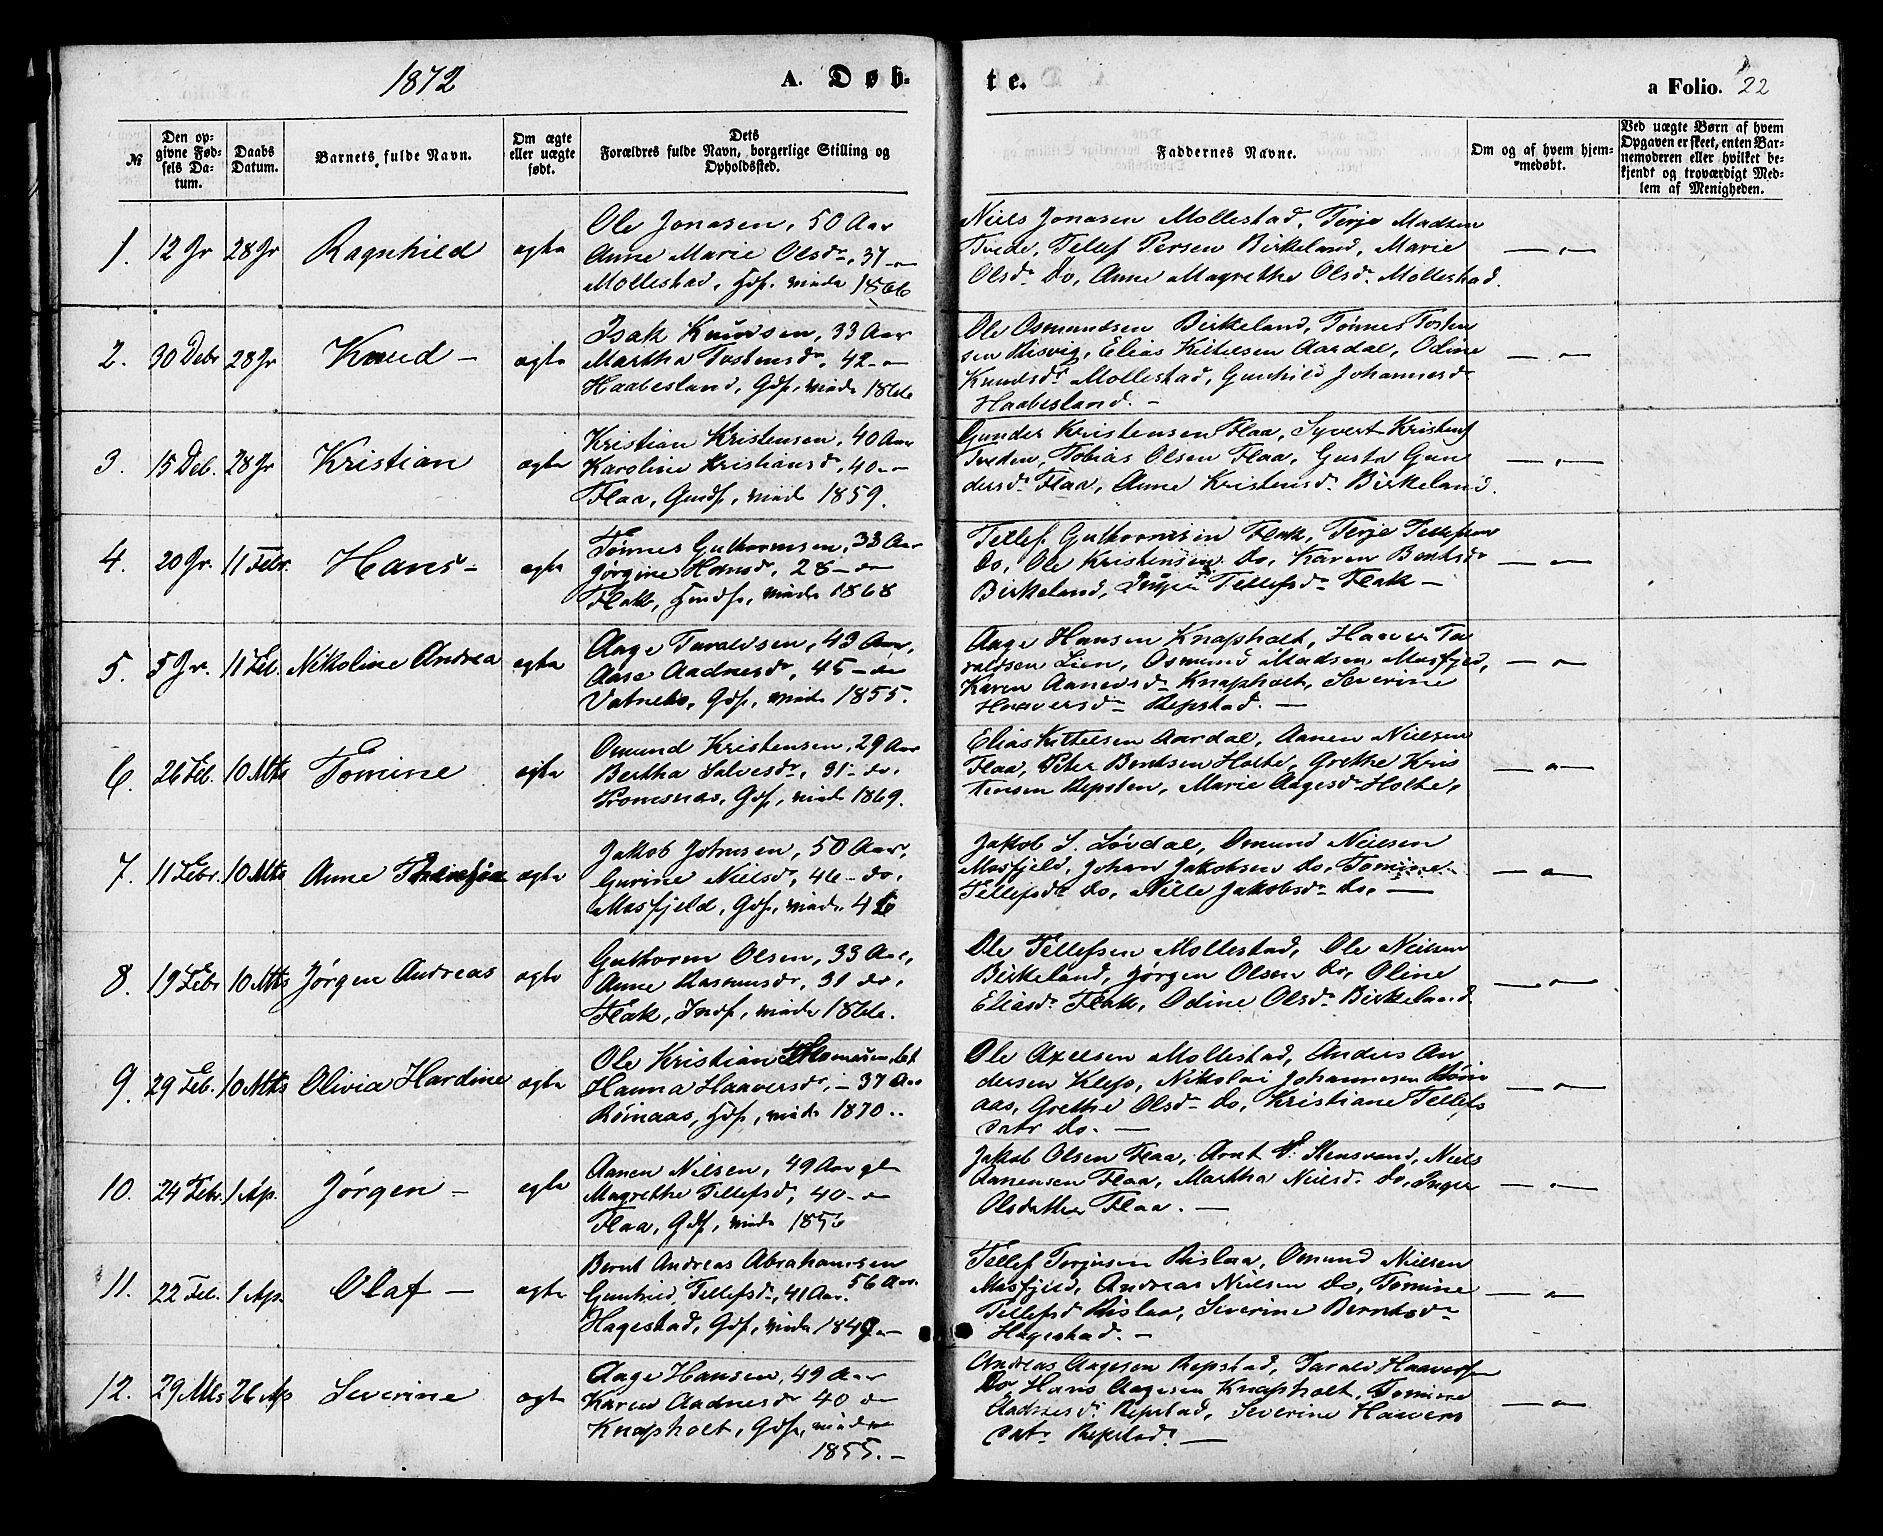 1872
A. Døb-
te.
a Folio. 22
№
Den op-
givne Fød-
sels Da-
tum.
Daabs
Datum.
Barnets fulde Navn.
Om ægte
eller uægte
født.
Dets
Forældres fulde Navn, borgerlige Stilling og
Opholdssted.
Faddernes Navne.
Om og af hvem hjem-
medøbt.
Ved uægte Børn af hvem
Opgaven er skeet, enten Bar-
nemoderen eller hvilket be-
kjendt og troværdigt Med-
lem af Menigheden.
1. 12 Jr 28 Jr Ragnhild ægte
Ole Jonasen, 50 Aar
Anne Marie Olsdr, 37 -
Mollestad, Gdf, viede 1866
Niels Jonasen Mollestad, Terje Madsen
Tvede, Tellef Persen Birkeland, Marie
Olsdr Do, Anne Magrethe Olsdr Mollestad.
2. 30 Debr 28 Jr Knud - ægte
Isak Knudsen, 33 Aar
Martha Tostensdr, 42 -
Haabesland, Gdf, viede 1866
Ole Osmundsen Birkeland, Tønnes Tosten
sen Risvig, Elias Kittelsen Aardal, Odine
Knudsdr Mollestad, Gunhild Johannesdr
Haabesland. -
3. 15 Deb. 28 Jr Kristian ægte
Kristian Kristensen, 40 Aar
Karoline Kristiansdr, 40 -
Flaa, Gmdf, viede 1859.
Gunder Kristensen Flaa, Syvert Kristens
Tveden, Tobias Olsen Flaa, Gusta Gun
dersdr Flaa, Anne Kristensdr Birkeland.
4. 20 Jr. 11 Febr. Hans - ægte
Tønnes Guthormsen, 33 Aar
Jørgine Hansdr, 28 - do
Flak, Gmdf, viede 1868
Tellef Guthormsen Flak, Terje Tellefsen
Do, Ole Kristensen Do, Karen Berntsdr
Birkeland, Tellefsdr Flak -
5. 5 Jr. 11 Feb. Nikoline Andrea ægte
Aage Taraldsen, 43 Aar,
Aase Aadnesdr, 45 - do
Vatnebo, Gdf, viede 1855.
Aage Hansen Knapholt, Haaver Ta
raldsen Lien, Osmund Madsen Masfjeld,
Karen Aanesdr Knapholt, Severine
Haaversdr Repstad. -
6. 26 Feb. 10 Mts Tomine ægte
Omund Kristensen, 29 Aar
Bertha Salvesdr, 31 - do.
Gdf, viede 1869.
Elias Kittelsen Aardal, Aanen Nielsen
Flaa, Peter Berntsen Holte, Grethe Kris
tensen Repsten, Marie Aagesdr Holte,
7. 11 Febr. 10 Mts Anne ægte
Jakob Johnsen, 50 Aar,
Gurine Nielsdr, 46 - do.
Masfjeld, Gdf, viede 46
Jakob S. Løvdal, Omund Nielsen
Masfjeld, Johan Jakobsen Do, Tomine
Tellefsdr Do, Nille Jakobsdr Do. -
8. 19 Febr 10 Mts Jørgen Andreas ægte
Guthorm Olsen, 33 Aar,
Anne Rasmusdr, 31 do,
Flak, Indf, viede 1866.
Ole Tellefsen Mollestad, Ole Nielsen
Birkeland, Jørgen Olsen Do, Oline
Eliasdr Flak, Odine Olsdr Birkeland
9. 29 Feb. 10 Mts Olivia Hardine ægte
Ole Kristian Thomesen
Hanna Haaversdr, - 37 Aar
Røinaas, Gdf, viede 1870.
Ole Axelsen Mollestad, Anders An
dersen Klep, Nikolai Johannesen Røin
aas, Grethe Olsdr Do, Kristiane Tellefs
datr Do. -
10. 24 Febr. 1 Ap. Jørgen - ægte
Aanen Nilsen, 49 Aar gl
Magrethe Tellefsd, 40 -
Flaa, Gdf, viede 1856
Jakob Olsen Flaa, Arnt Stensvand, Niels
Aanensen Flaa, Martha Nielsd. Do, Inger
Olsdatter Flaa. -
11. 22 Feb. 1 Ap. Olaf - ægte
Bernt Andreas Abrahamsen
56 Aar.
Gunhild Tellefsdr, 41 Aar.
Hagestad, Gdf, viede 1849
Tellef Torjusen Rislaa, Omund Nielsen
Masfjeld, Andreas Nielsen Do, Tomine
Tellefsd Rislaa, Severine Berntsdr
Hagestad. -
12. 29 Mts 26 Ap Severine ægte
Aage Hansen, 49 Aar
Karen Aadnesdr 40 do
Knapholt, Gdf, viede
1855. -
Andreas Aagesen Repstad, Tarald Haaversen
Do, Hans Aagesen Knapholt, Tomine
Aadnesdr. Repstad, Severine Haavers
datr Repstad. -